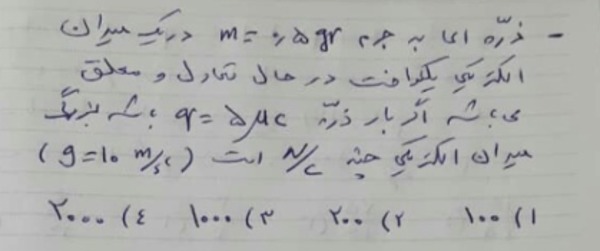 - ذرّه ای به جرم m = ۰٫۵ gr در یک میدان
الکتریکی یکنواخت در حال تعادل و معلق
می باشد اگر بار ذرّه q = ۵ μc باشد بزرگی
میدان الکتریکی چند N/C است (g = ۱۰ m/s²)
۱) ۱۰۰ ۲) ۲۰۰ ۳) ۱۰۰۰ ۴) ۲۰۰۰